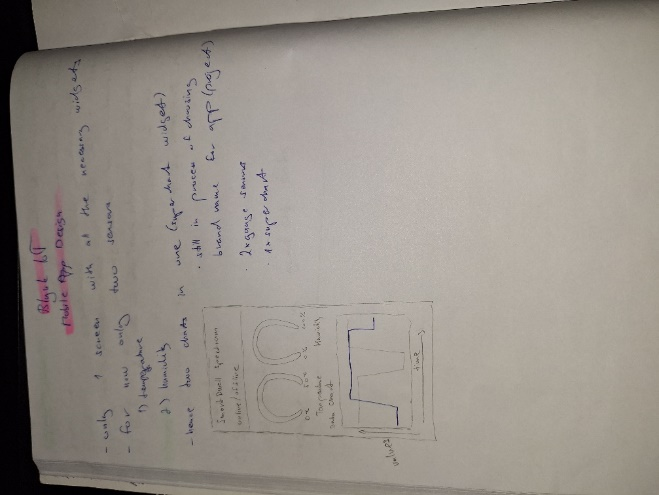 Blynk IoT
Mobile App Design
- only 1 screen with all the necessary widgets
- for now only two sensors
1) temperature
2) humidity
- hence two charts in one (superchart widget)
· still in process of choosing
brand name for app (project)
· 2x gauge
· 1x superchart
online/offline
Temperature Humidity
Data chart
values
time